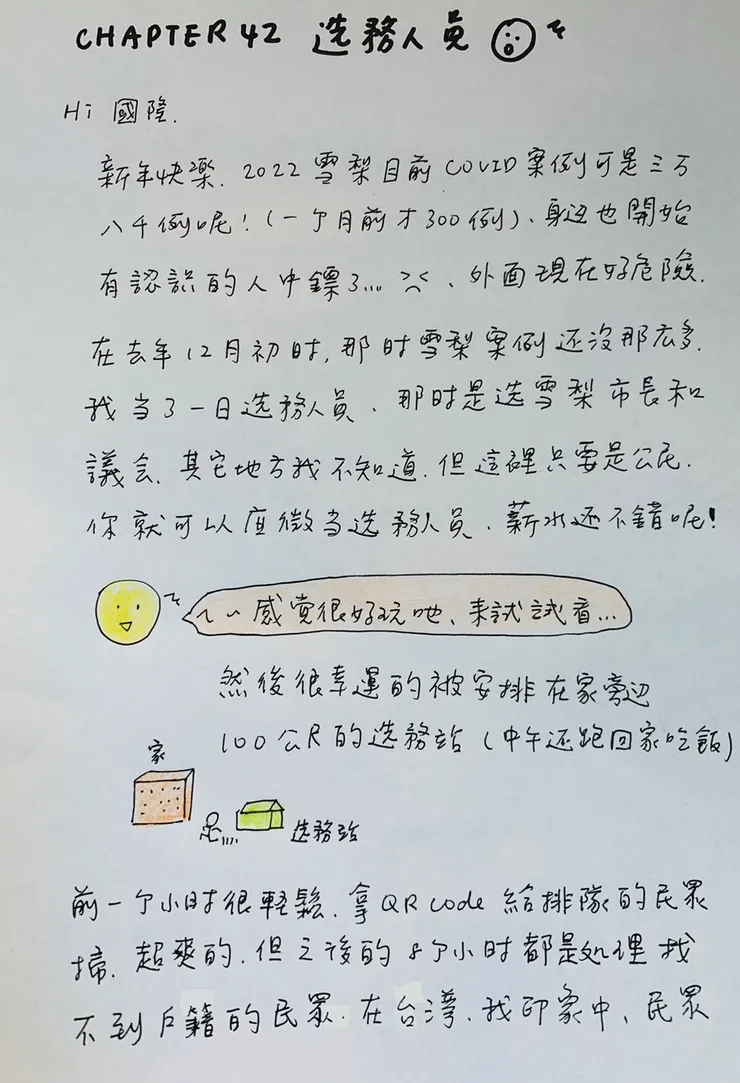 CHAPTER 42 选務人員
Hi 國隆.
新年快樂. 2022 雪梨目前 COVID 案例可是三万
八千例呢!(一个月前才300例)、身边也開始
有認識的人中鏢了...、外面現在好危險.
在去年12月初时, 那时雪梨案例还沒那広多.
我当了一日选務人員、那时是选雪梨市長和
議会. 其它地方我不知道. 但這裡只要是公民.
你就可以应徵当选務人員、薪水还不錯呢!
感覚很好玩吔、来試試看...
然後很幸運的被安排在家旁辺
100公尺的选務站(中午还跑回家吃飯)
家
选務站
前一个小时很輕鬆. 拿QR code 給排隊的民眾
掃. 超爽的. 但之後的8个小时都是処理找
不到户籍的民眾. 在台湾. 我印象中、民眾